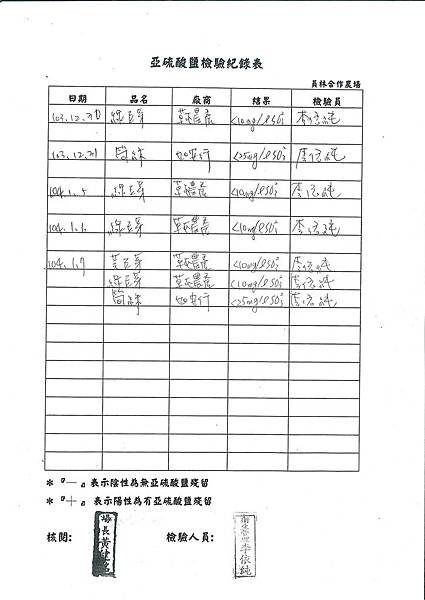 亞硫酸鹽檢驗紀錄表
員林合作農場
日期 品名 廠商 結果 檢驗員
103.12.30 綠豆芽 草農產 <10mg/l SO₃²⁻ 李依純
103.12.31 筍絲 如安行 <25mg/l SO₃²⁻ 李依純
104.1.5 綠豆芽 草農產 <10mg/l SO₃²⁻ 李依純
104.1.1. 綠豆芽 草農產 <10mg/l SO₃²⁻ 李依純
104.1.7 黃豆芽 草農產 <10mg/l SO₃²⁻ 李依純
綠豆芽 草農產 <10mg/l SO₃²⁻ 李依純
筍絲 如安行 <25mg/l SO₃²⁻ 李依純
＊『－』表示陰性為無亞硫酸鹽殘留
＊『＋』表示陽性為有亞硫酸鹽殘留
核閱： 場長黃建銘 檢驗人員： 衛生管理李依純